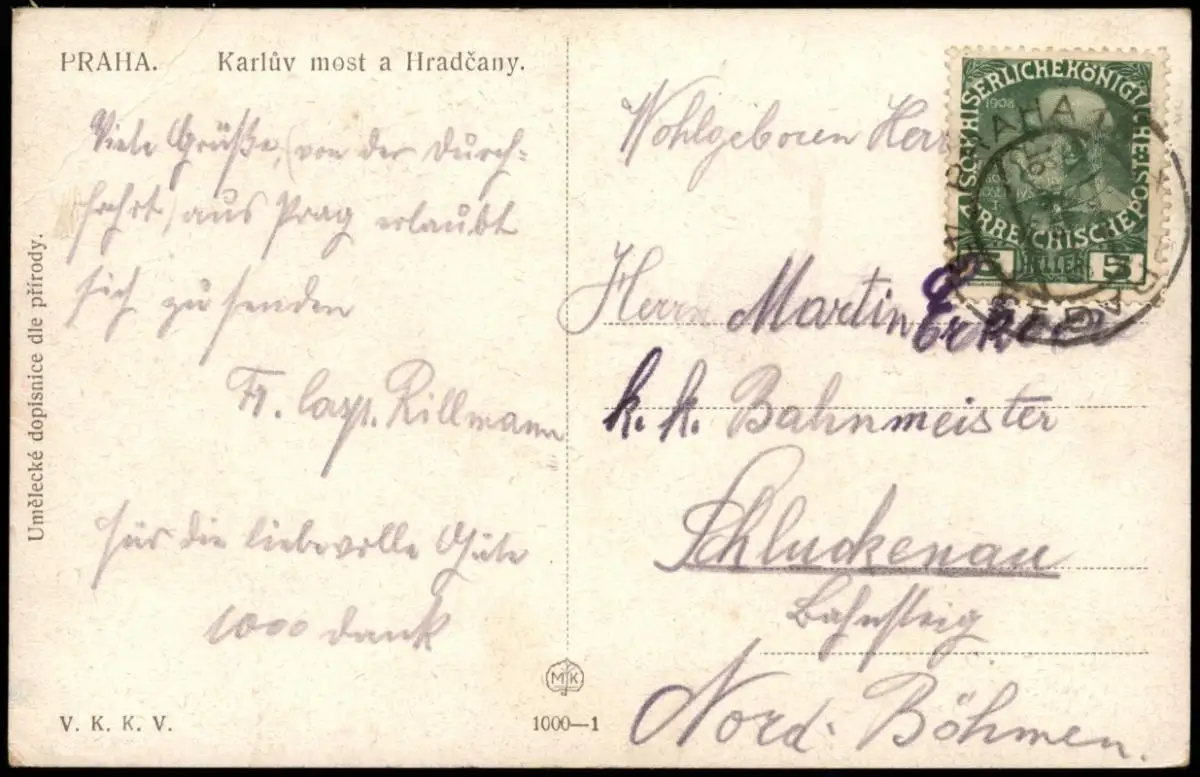 PRAHA. Karlův most a Hradčany.
Viele Grüße, (von der Durch-
fahrt) aus Prag erlaubt
sich zu senden
Fr. Rillmann
für die liebevolle Güte
1000 dank
Umělecké dopisnice dle přírody.
V. K. K. V.
MK
1000—1
KAISERLICHE KÖNIGLICHE ÖSTERREICHISCHE POST
1908
5 HELLER 5
PRAHA
PRAG
Wohlgeboren Herr
Herrn Martin
k. k. Bahnmeister
Schluckenau
Bahnsteig
Nord. Böhmen.